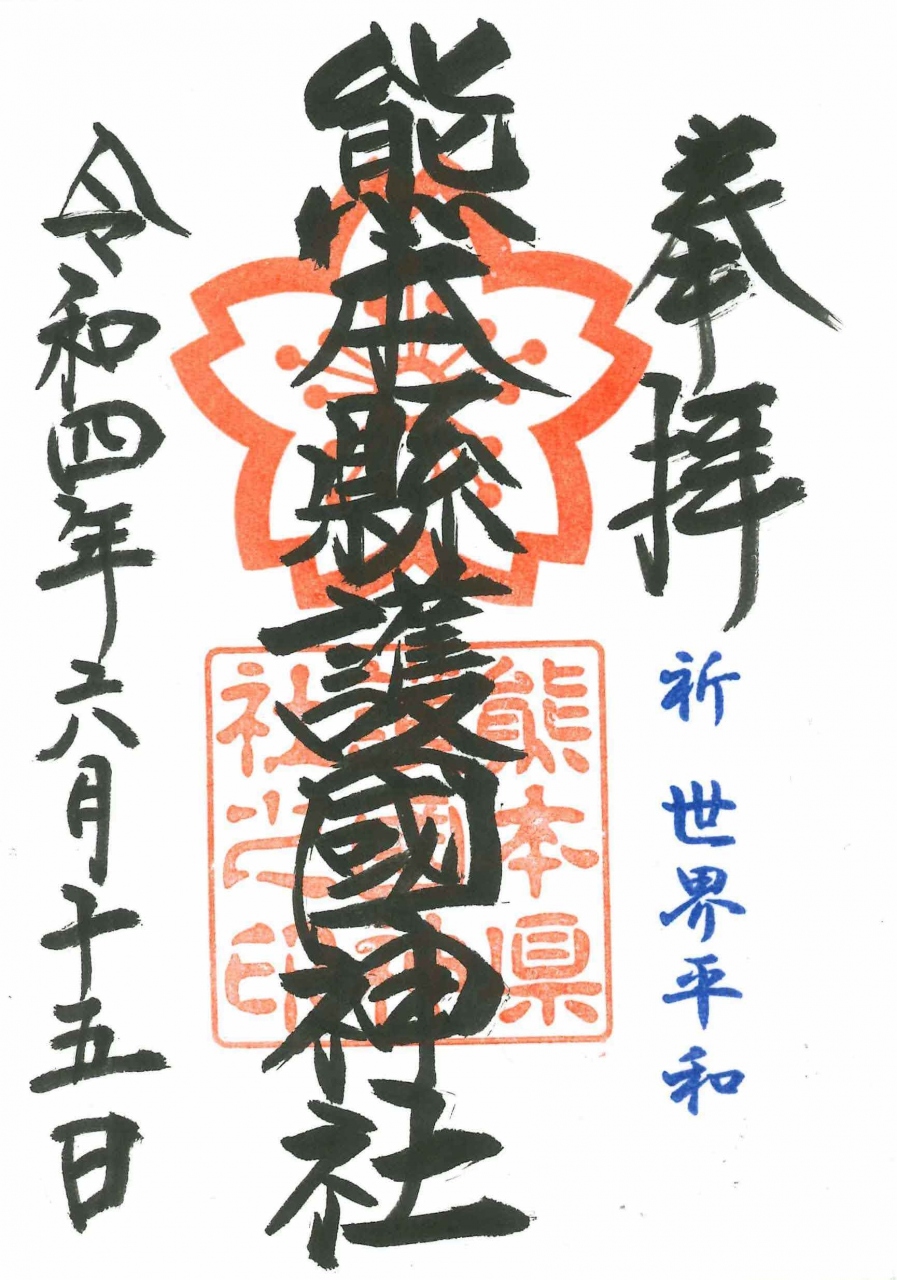 奉拝
祈 世界平和
熊本縣護國神社
熊本県
護国神
社之印
令和四年六月十五日